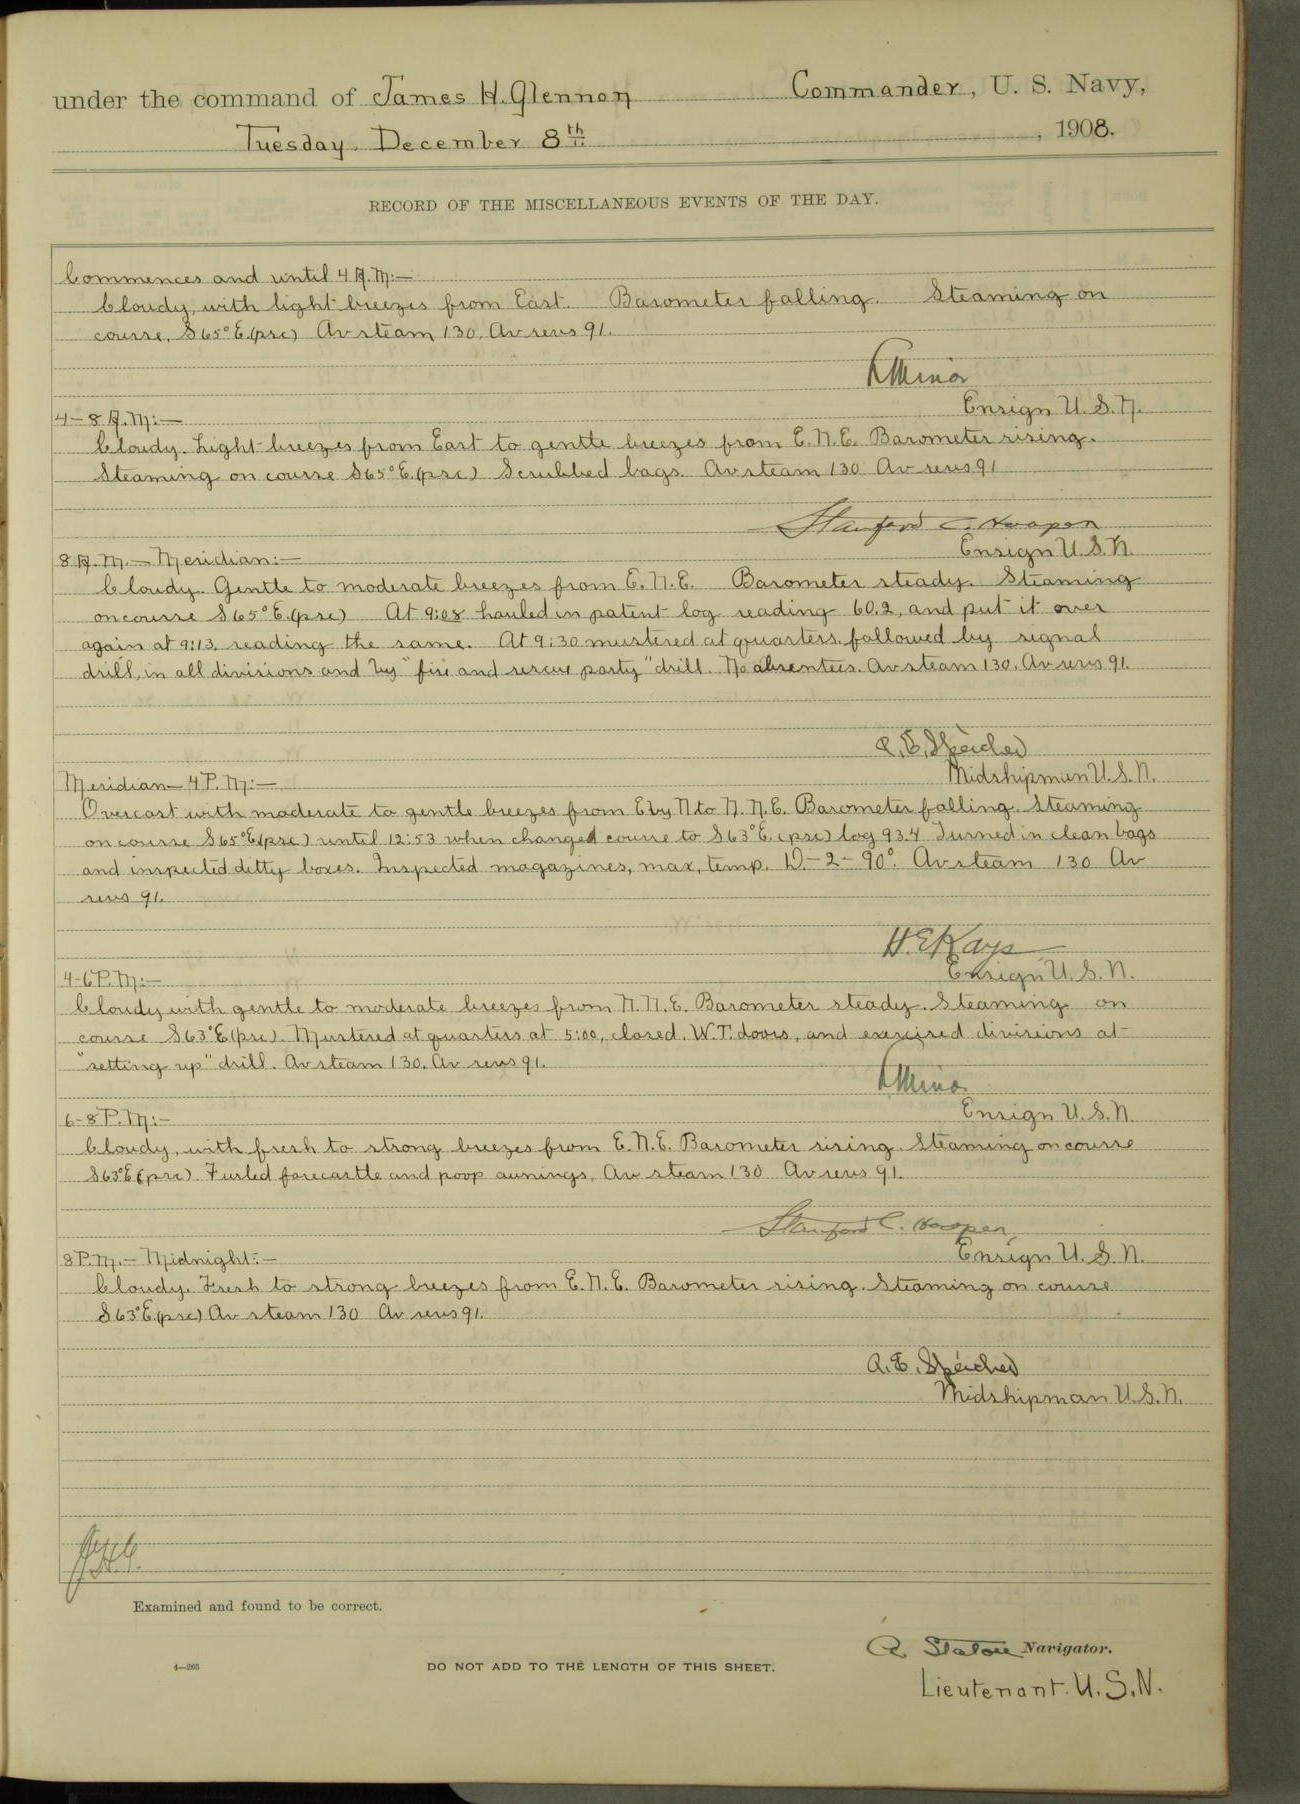 under the command of James H. Glennon Commander, U. S. Navy,
Tuesday, December 8th, 1908.
RECORD OF THE MISCELLANEOUS EVENTS OF THE DAY.
Commences and until 4 A.M:—
Cloudy, with light breezes from East. Barometer falling. Steaming on
course, S65°E.(psc) Av steam 130, Av revs 91.
Minor
Ensign U.S.N.
4—8 A.M:—
Cloudy. Light breezes from East to gentle breezes from E.N.E. Barometer rising.
Steaming on course S65°E.(psc) Scrubbed bags. Av steam 130 Av revs 91
Stanford C. Hooper
Ensign U.S.N.
8 A.M.— Meridian:—
Cloudy. Gentle to moderate breezes from E.N.E. Barometer steady. Steaming
on course S65°E.(psc) At 9:08 hauled in patent log reading 60.2, and put it over
again at 9:13, reading the same. At 9:30 mustered at quarters, followed by signal
drill, in all divisions and by "fire and rescue party" drill. No absentees. Av steam 130. Av revs 91.
Midshipman U.S.N.
Meridian— 4 P.M:—
Overcast with moderate to gentle breezes from E by N to N.N.E. Barometer falling. Steaming
on course S65°E(psc) until 12:53 when changed course to S63°E. (psc) log 93.4 Turned in clean bags
and inspected ditty boxes. Inspected magazines, max, temp. D—2—90°. Av steam 130 Av
revs 91.
H.E.Kays
Ensign U.S.N.
4-6 P.M:—
Cloudy with gentle to moderate breezes from N.N.E. Barometer steady. Steaming on
course S63°E(psc). Mustered at quarters at 5:00, closed W.T. doors, and exercised divisions at
"setting up" drill. Av steam 130. Av revs 91.
Minor
Ensign U.S.N.
6-8 P.M:—
Cloudy, with fresh to strong breezes from E.N.E. Barometer rising. Steaming on course
S63°E(psc). Furled forecastle and poop awnings, Av steam 130 Av revs 91.
Stanford C. Hooper
Ensign U.S.N.
8 P.M.— Midnight:—
Cloudy. Fresh to strong breezes from E.N.E. Barometer rising. Steaming on course
S63°E.(psc) Av steam 130 Av revs 91.
Midshipman U.S.N.
J.H.G.
Examined and found to be correct.
Navigator.
4—265
DO NOT ADD TO THE LENGTH OF THIS SHEET.
Lieutenant U.S.N.